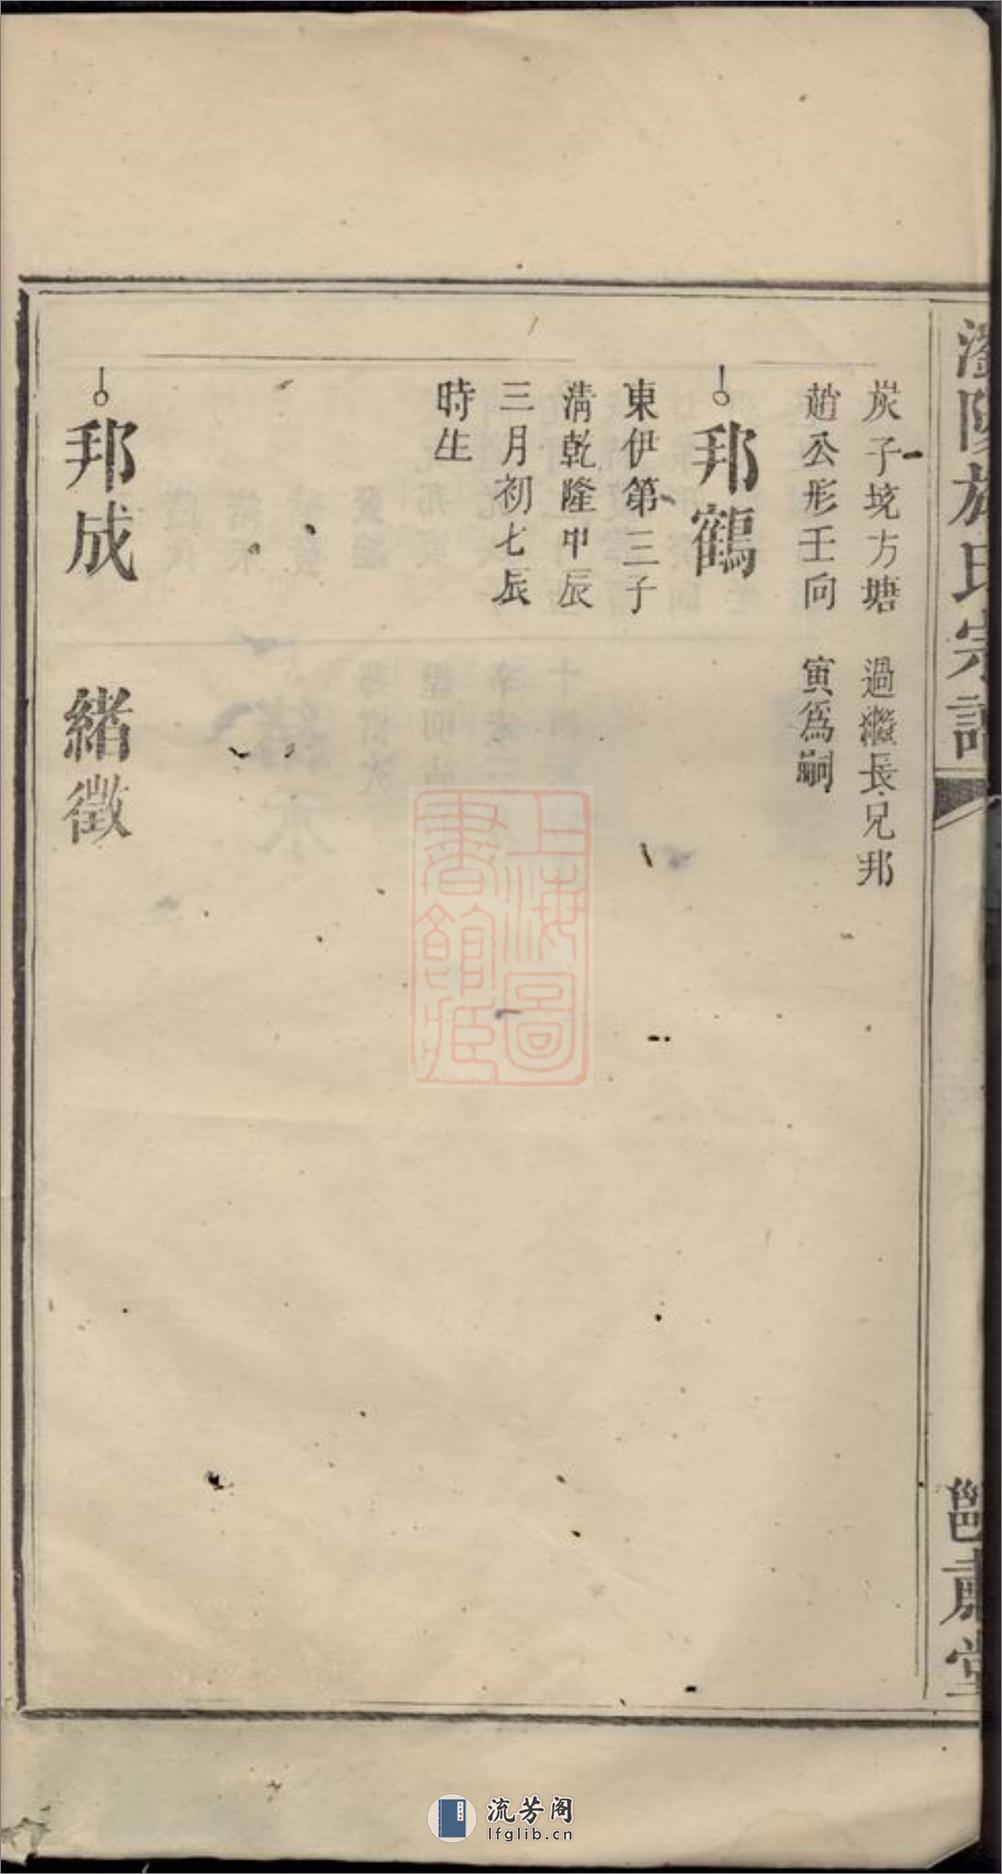 氏宗譜
雝肅堂
炭子垸方塘
過繼長兄邦
趙公形壬向
寅爲嗣
邦鶴
東伊第三子
清乾隆甲辰
三月初七辰
時生
邦成
緒徵
上海圖
書館藏
流芳阁
lfglib.cn